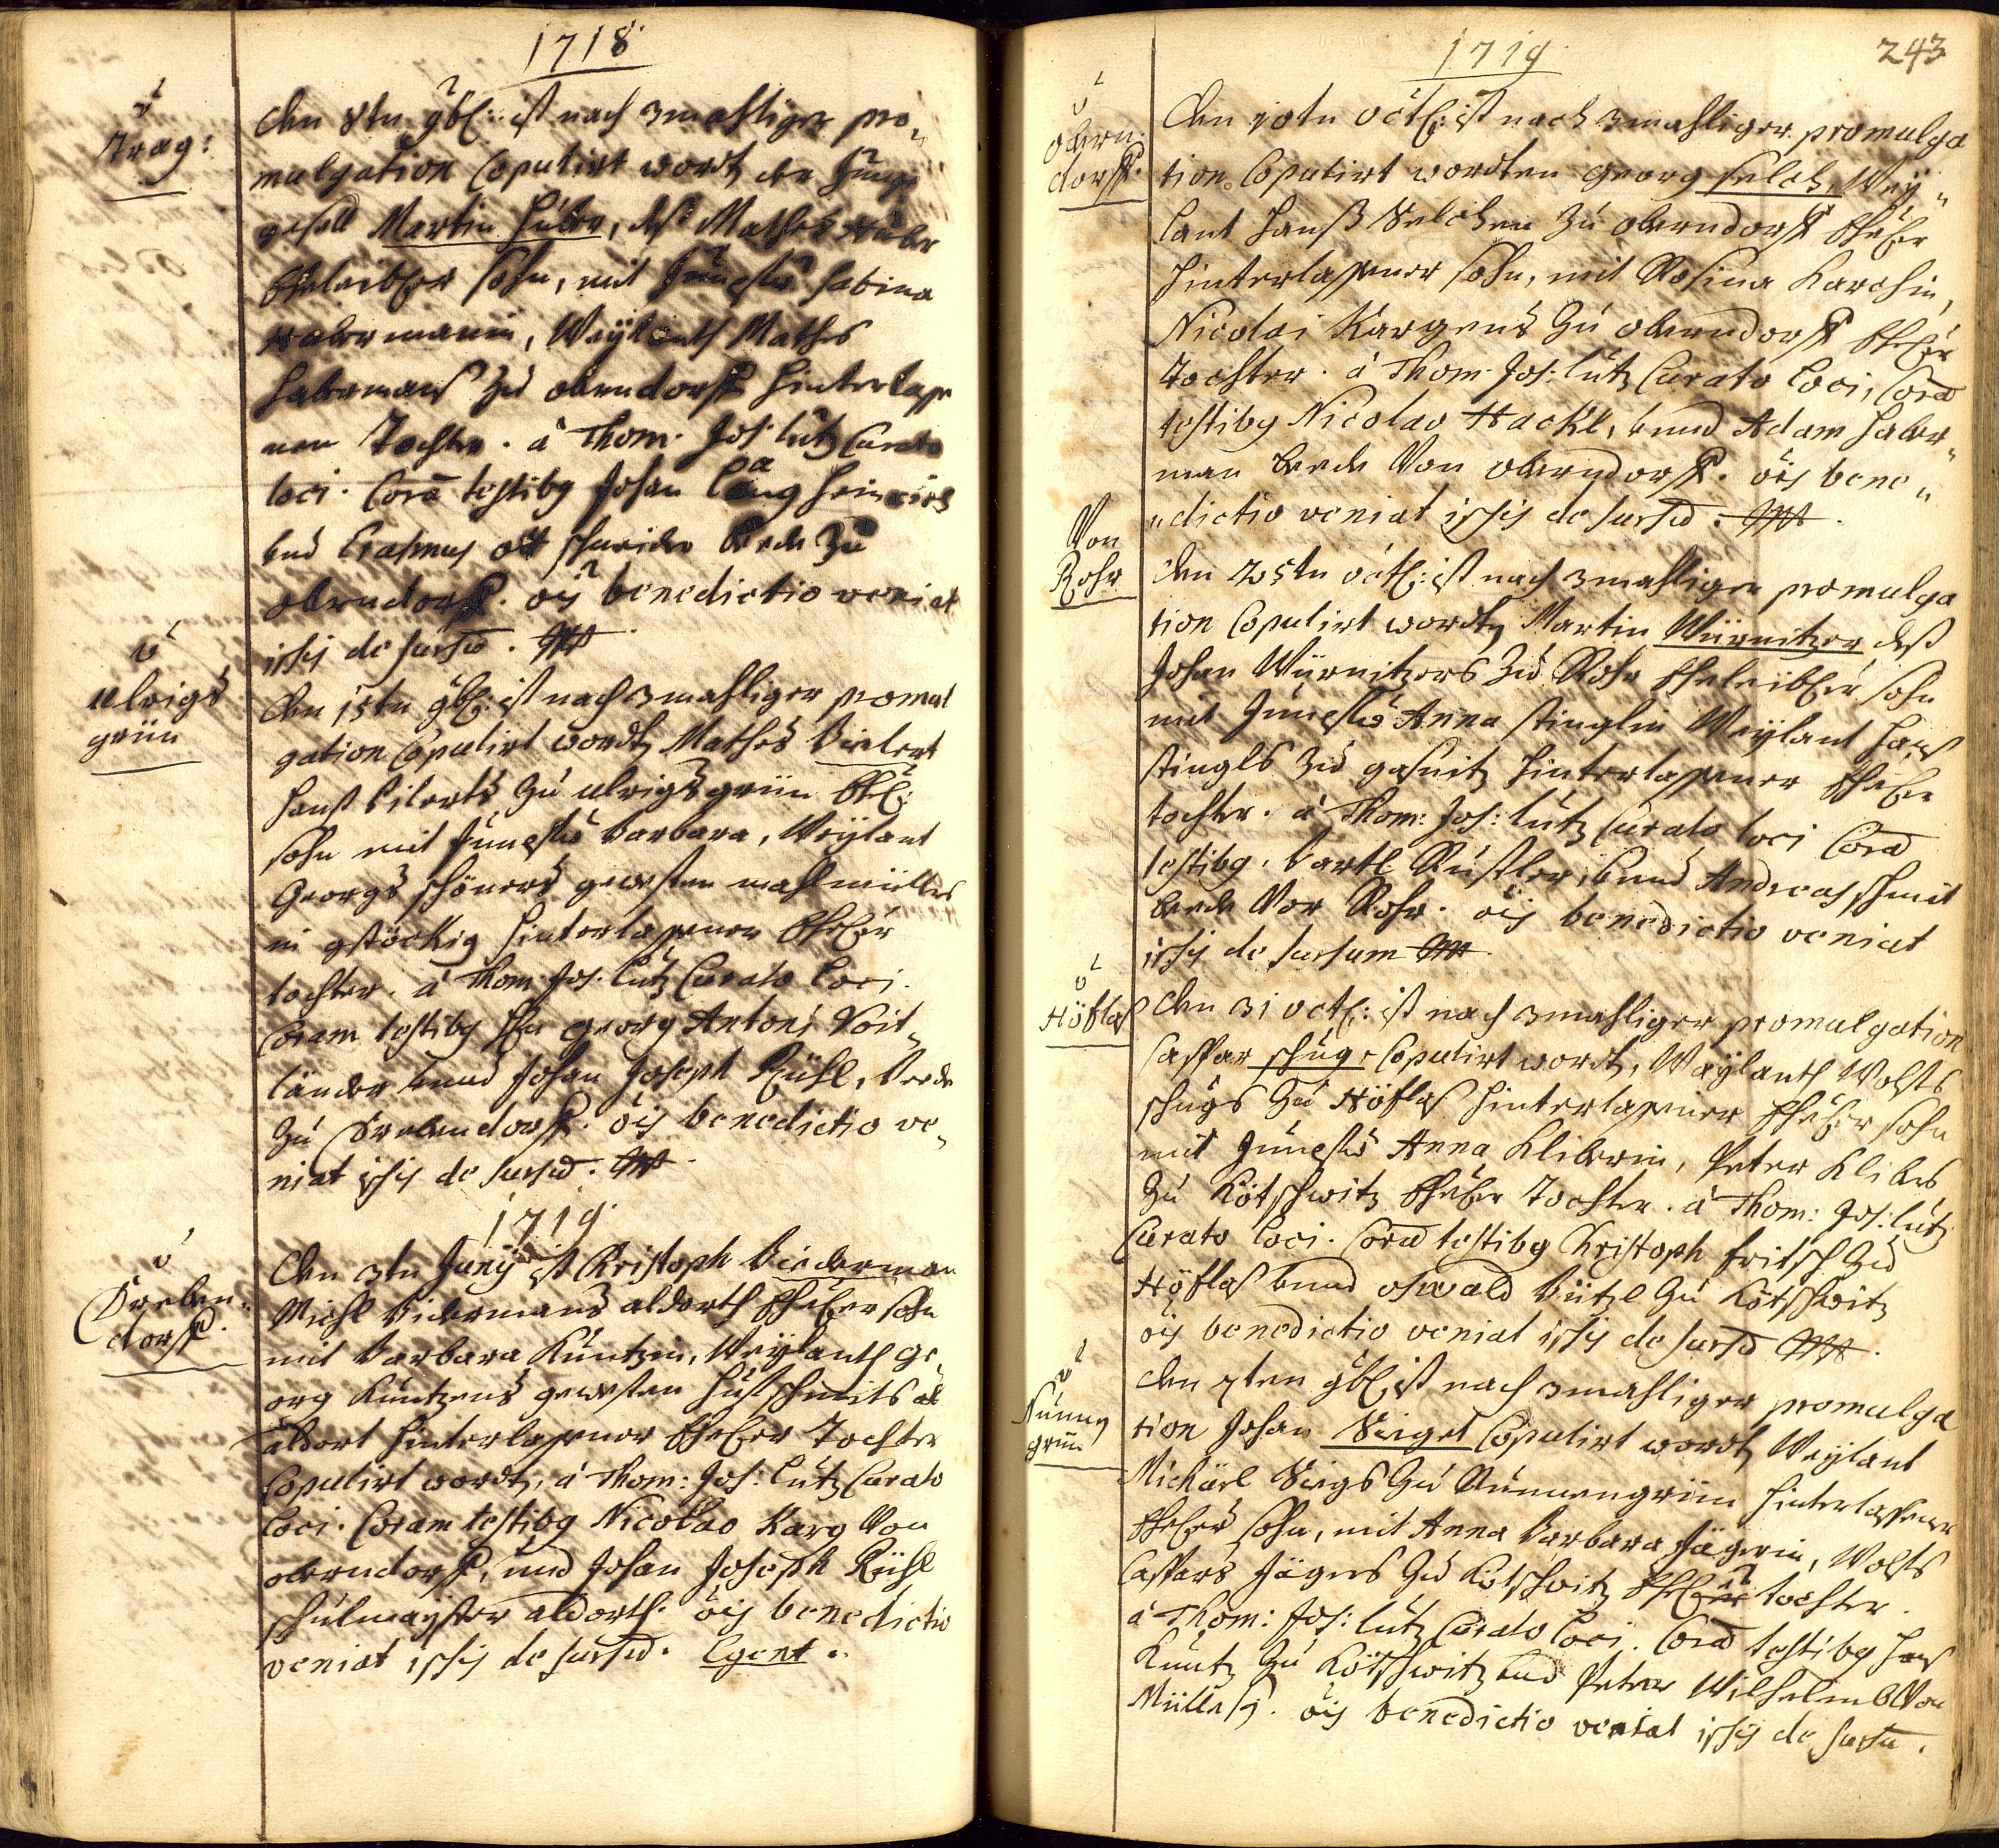 1718
v
Trag:
den 8tn 9bl: ist nach 3mahliger pro„
mulgation Copulirt wordt, der Junge
gesell Martin Huber, deß Mathes Huber
Eheleibler sohn, mit Jungfr Sabina
Habermanin, Weÿlanth Mathes
Habermanß zu oberndorff hinterlaße
nen Tochter. à Thom: Jos: Lutz Curato
loci. Corā testibg Johan Lang
und Erasmus ott schneider beede zu
oberndorff. ois benedictio veniat
issis de sursū.
v
ulrigs
grün
den 15tn 9bl: ist nach 3mahliger promul
gation Copulirt wordt, Mathes Bielert
Hanß Bilerts zu ulrigsgrün Ehl:
sohn mit Jungfr Barbara, Weÿlant
Georgs schöners gewesten mahlmüllers
in gstöckig hinterlaßener Eheler
tochter. à Thom: Jos: Lutz Curato Loci.
Coram testibg Hr Georg Antoni Voit„
länder unnd Johan Joseph Rühl, beede
zu Frebendorff. ois benedictio ve„
niat issis de sursū.
1719
v
Freben„
dorff.
den 3tn Junÿ ist Christoph Biederman
Michl Bidermans aldorth Eheler sohn
mit Barbara Kuntzin, Weÿlanth Ge„
org Kuntzens gewesten Hufschmits al
aldort hinterlaßener Eheler Tochter
Copulirt wordt, à Thom: Jos: Lutz Curato
Loci. Coram testibg Nicolao Karg Von
oberndorff, und Johan Joseph Rühl
schulmaÿster aldorth. ois benedictio
veniat issis de sursū. Egent.
1719
243
v
obern:
dorff.
den 10tn octl: ist nach 3mahliger promulga
tion Copulirt wordten Georg Selch, Weÿ„
lant Hanß Selchen zu oberndorff Eheler
hinterlaßener sohn, mit Rosina Karchin,
Nicolai Kargens zu oberndorff Eheler
Tochter. à Thom: Jos: Lutz Curato Loci, Corā
testibg Nicolao Hackl, unnd Adam Haber„
man beede Von oberndorff. ois bene„
„dictio veniat issis de sursū.
Von
Rohr
den 25tn octl: ist nach 3mahliger promulga
tion Copulirt wordt, Martin Würnitzer deß
Johan Würnitzers zu Rohr Eheleibler sohn
mit Jungfr Anna stinglin Weÿlant Hanß
stingls zu gasnitz hinterlaßener Eheler
tochter. à Thom: Jos: Lutz Curato loci Corā
testibg. Bartl Rustler, unnd Andreas schmit
beede Von Rohr. ois benedictio veniat
issis de sursum
v
Höflaß
den 31 octl: ist nach 3mahliger promulgation
Casspar schug Copulirt wordt, Weÿlanth Wolffs
schugs zu Höflaß hinterlaßener Eheler sohn
mit Jungfr Anna Kliberin, Peter Klibers
zu Kötschwitz Eheler Tochter. à Thom: Jos: Lutz
Curato Loci. Corā testibg Christoph fritsch zu
Höflaß unnd oswald Bützl zu Kötschwitz
ois benedictio veniat issis de sursū.
v
Nunng
grün
den 7ten 9bl: ist nach 3mahliger promulga
tion Johan Veigel Copulirt wordt, Weÿlant
Michäel Veigls zu Nunnengrün hinterlassener
Eheler sohn, mit Anna Barbara Jägerin, Wolffs
Caspars Jägers zu Kötschwitz Eheler tochter.
à Thom: Jos: Lutz Curato Loci. Corā testibg Hanß
Kuntz zu Kötschwitz und Peter Wilhelmb Von
Mülleß. ois benedictio veniat issis de sursū.